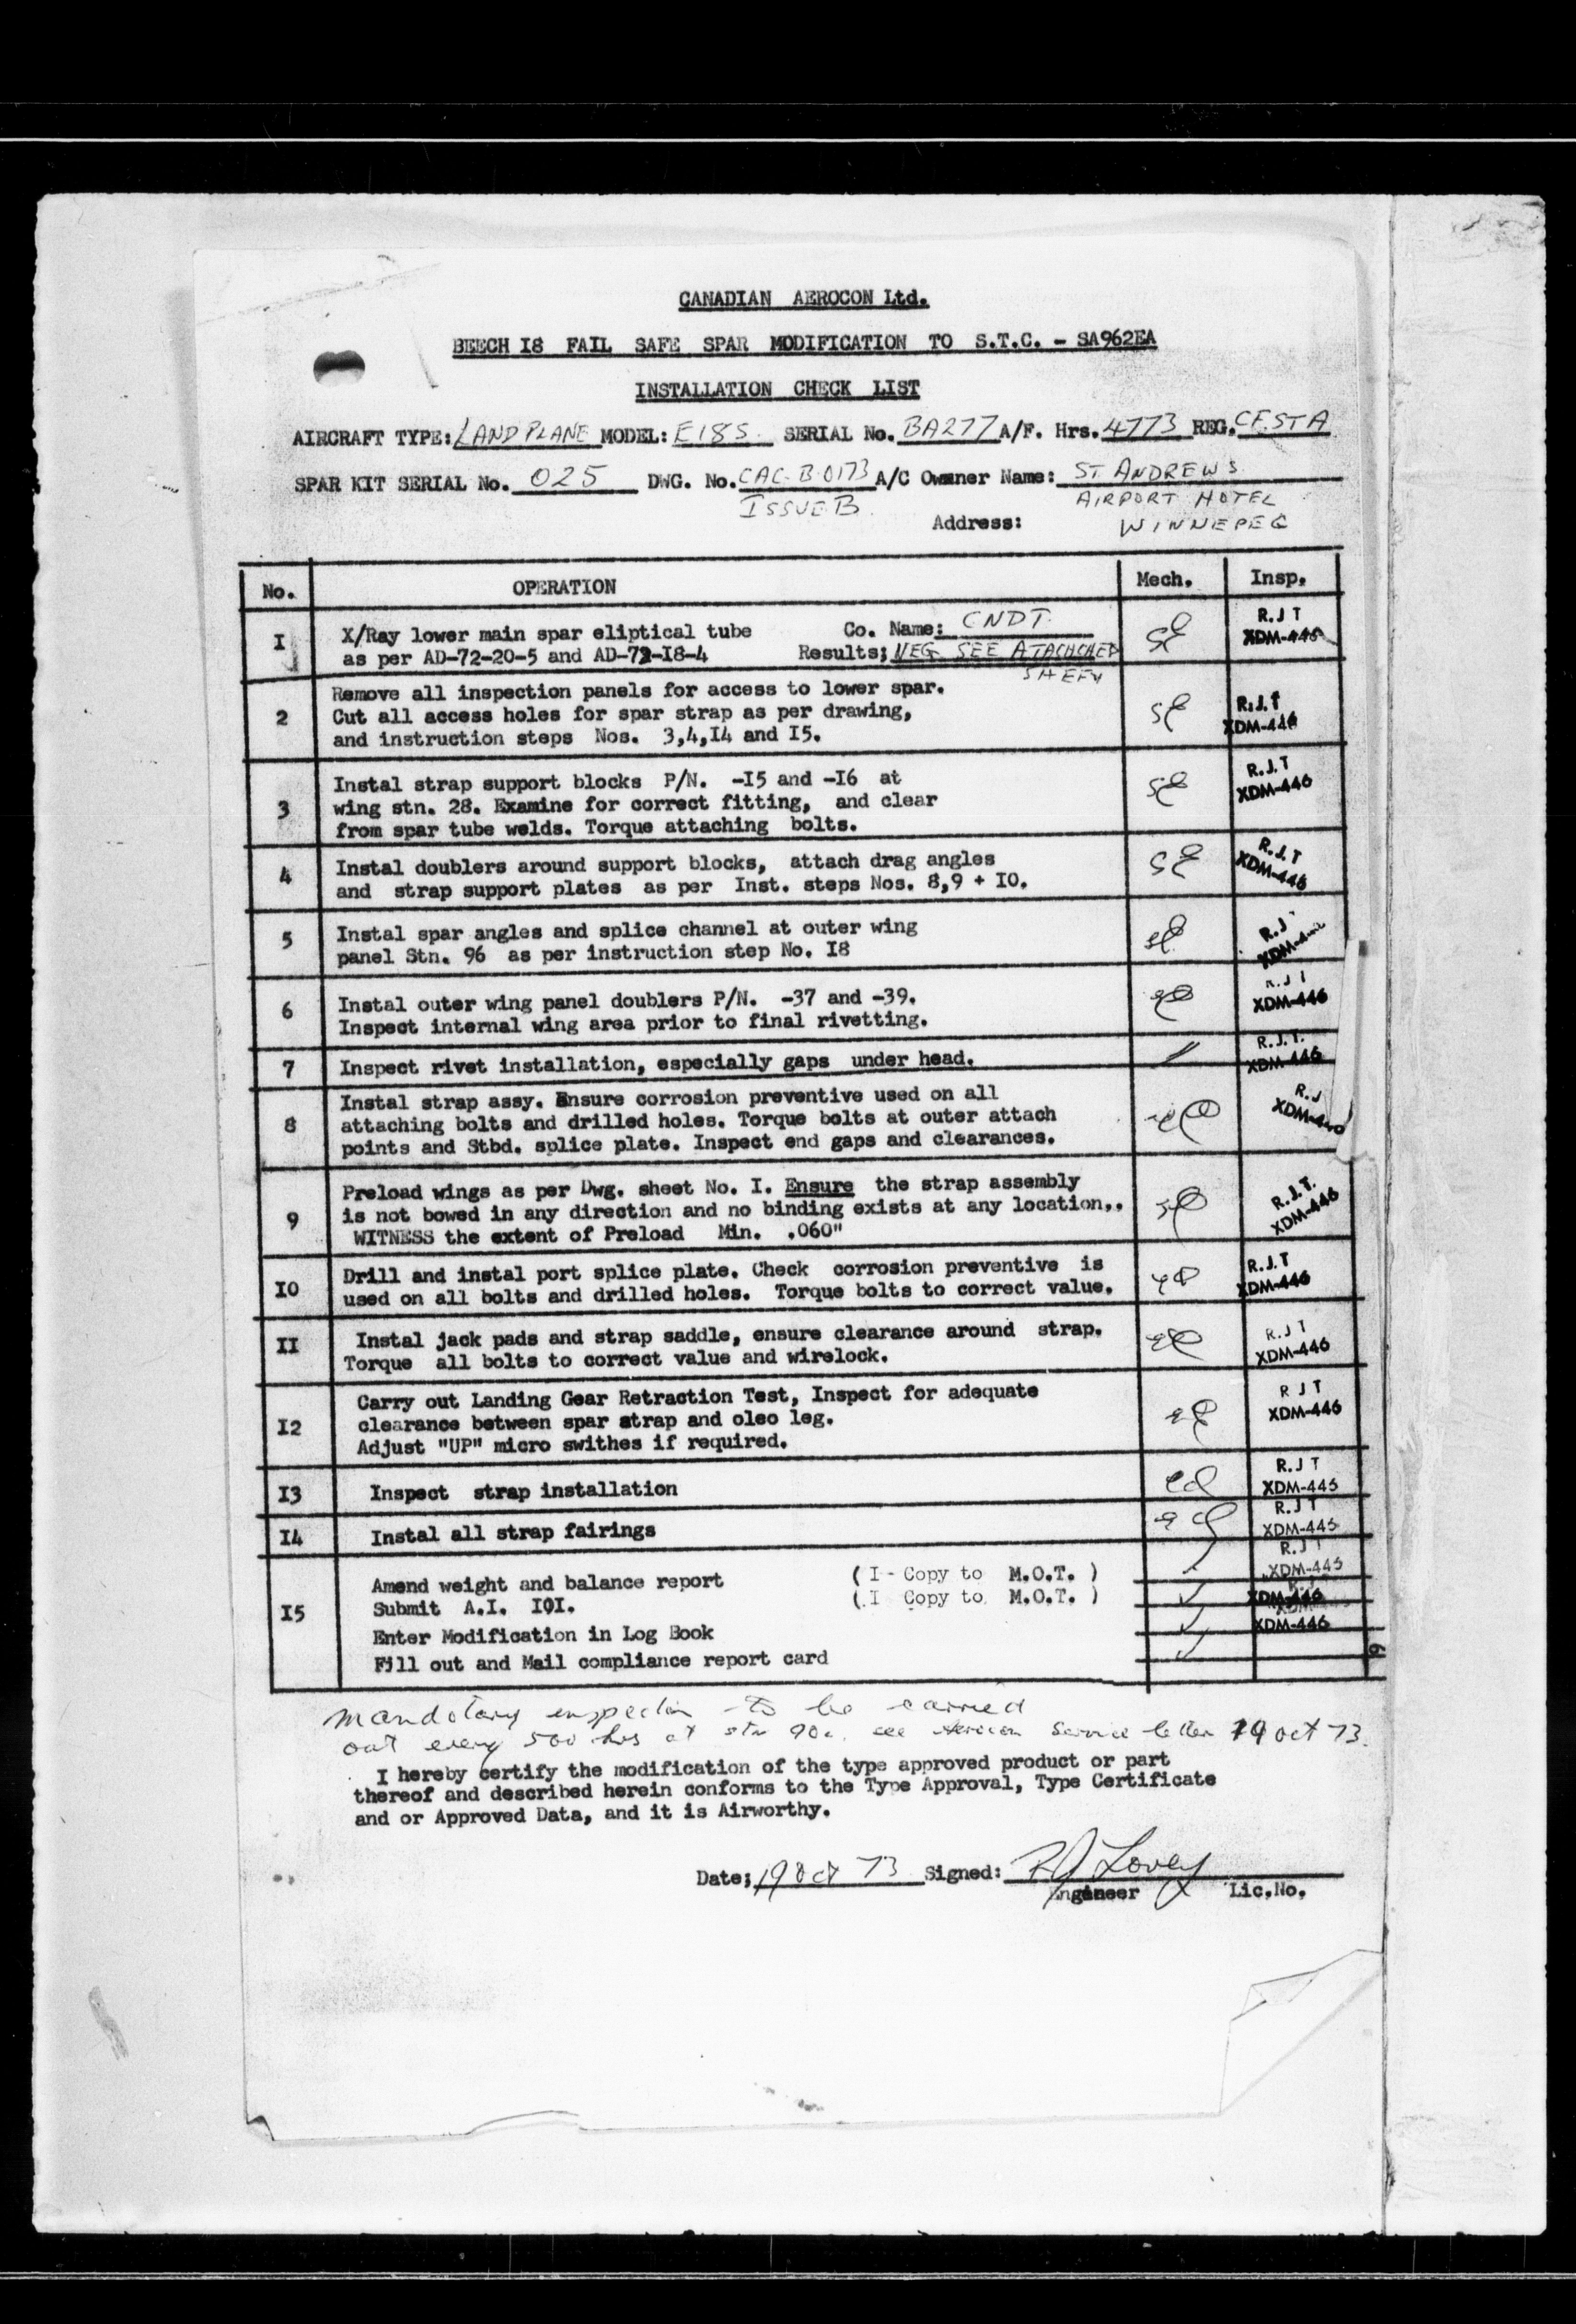 CANADIAN AEROCON Ltd.
BEECH I8 FAIL SAFE SPAR MODIFICATION TO S.T.C. - SA962EA
INSTALLATION CHECK LIST
AIRCRAFT TYPE: LANDPLANE MODEL: E18S. SERIAL No. BA277 A/F. Hrs. 4773 REG. CF.STA
SPAR KIT SERIAL No. 025 DWG. No. CAC-B-0173 A/C Owmner Name: ST ANDREWS
ISSUE B. AIRPORT HOTEL
Address: WINNEPEG
No. OPERATION Mech. Insp.
I X/Ray lower main spar eliptical tube Co. Name: CNDT. R.J T
as per AD-72-20-5 and AD-72-I8-4 Results; NEG SEE ATACHCHED XDM-446
Remove all inspection panels for access to lower spar.
2 Cut all access holes for spar strap as per drawing, R.J.T
and instruction steps Nos. 3,4,I4 and I5. XDM-446
Instal strap support blocks P/N. -I5 and -I6 at R.J.T
3 wing stn. 28. Examine for correct fitting, and clear XDM-446
from spar tube welds. Torque attaching bolts.
4 Instal doublers around support blocks, attach drag angles R.J.T
and strap support plates as per Inst. steps Nos. 8,9 + IO. XDM-446
5 Instal spar angles and splice channel at outer wing R.J
panel Stn. 96 as per instruction step No. I8
6 Instal outer wing panel doublers P/N. -37 and -39.
Inspect internal wing area prior to final rivetting. XDM-446
7 Inspect rivet installation, especially gaps under head. R.J.T. XDM-446
Instal strap assy. Ensure corrosion preventive used on all R.J
8 attaching bolts and drilled holes. Torque bolts at outer attach
points and Stbd. splice plate. Inspect end gaps and clearances.
Preload wings as per Dwg. sheet No. I. Ensure the strap assembly R.J.T.
9 is not bowed in any direction and no binding exists at any location,. XDM-446
WITNESS the extent of Preload Min. .060"
IO Drill and instal port splice plate. Check corrosion preventive is R.J.T
used on all bolts and drilled holes. Torque bolts to correct value. XDM-446
II Instal jack pads and strap saddle, ensure clearance around strap. R.J T
Torque all bolts to correct value and wirelock. XDM-446
Carry out Landing Gear Retraction Test, Inspect for adequate R J T
I2 clearance between spar strap and oleo leg. XDM-446
Adjust "UP" micro swithes if required.
I3 Inspect strap installation R.J T XDM-446
I4 Instal all strap fairings R.J T XDM-446
Amend weight and balance report (I - Copy to M.O.T. ) R.J T XDM-446
I5 Submit A.I. IOI. (I Copy to M.O.T. ) XDM-446
Enter Modification in Log Book XDM-446
Fill out and Mail compliance report card
mandatory inspection to be carried
out every 500 hrs at stn 90. see Aerocon Service letter 19 oct 73.
I hereby certify the modification of the type approved product or part
thereof and described herein conforms to the Type Approval, Type Certificate
and or Approved Data, and it is Airworthy.
Date; 19 Oct 73 Signed:
Engineer Lic.No.